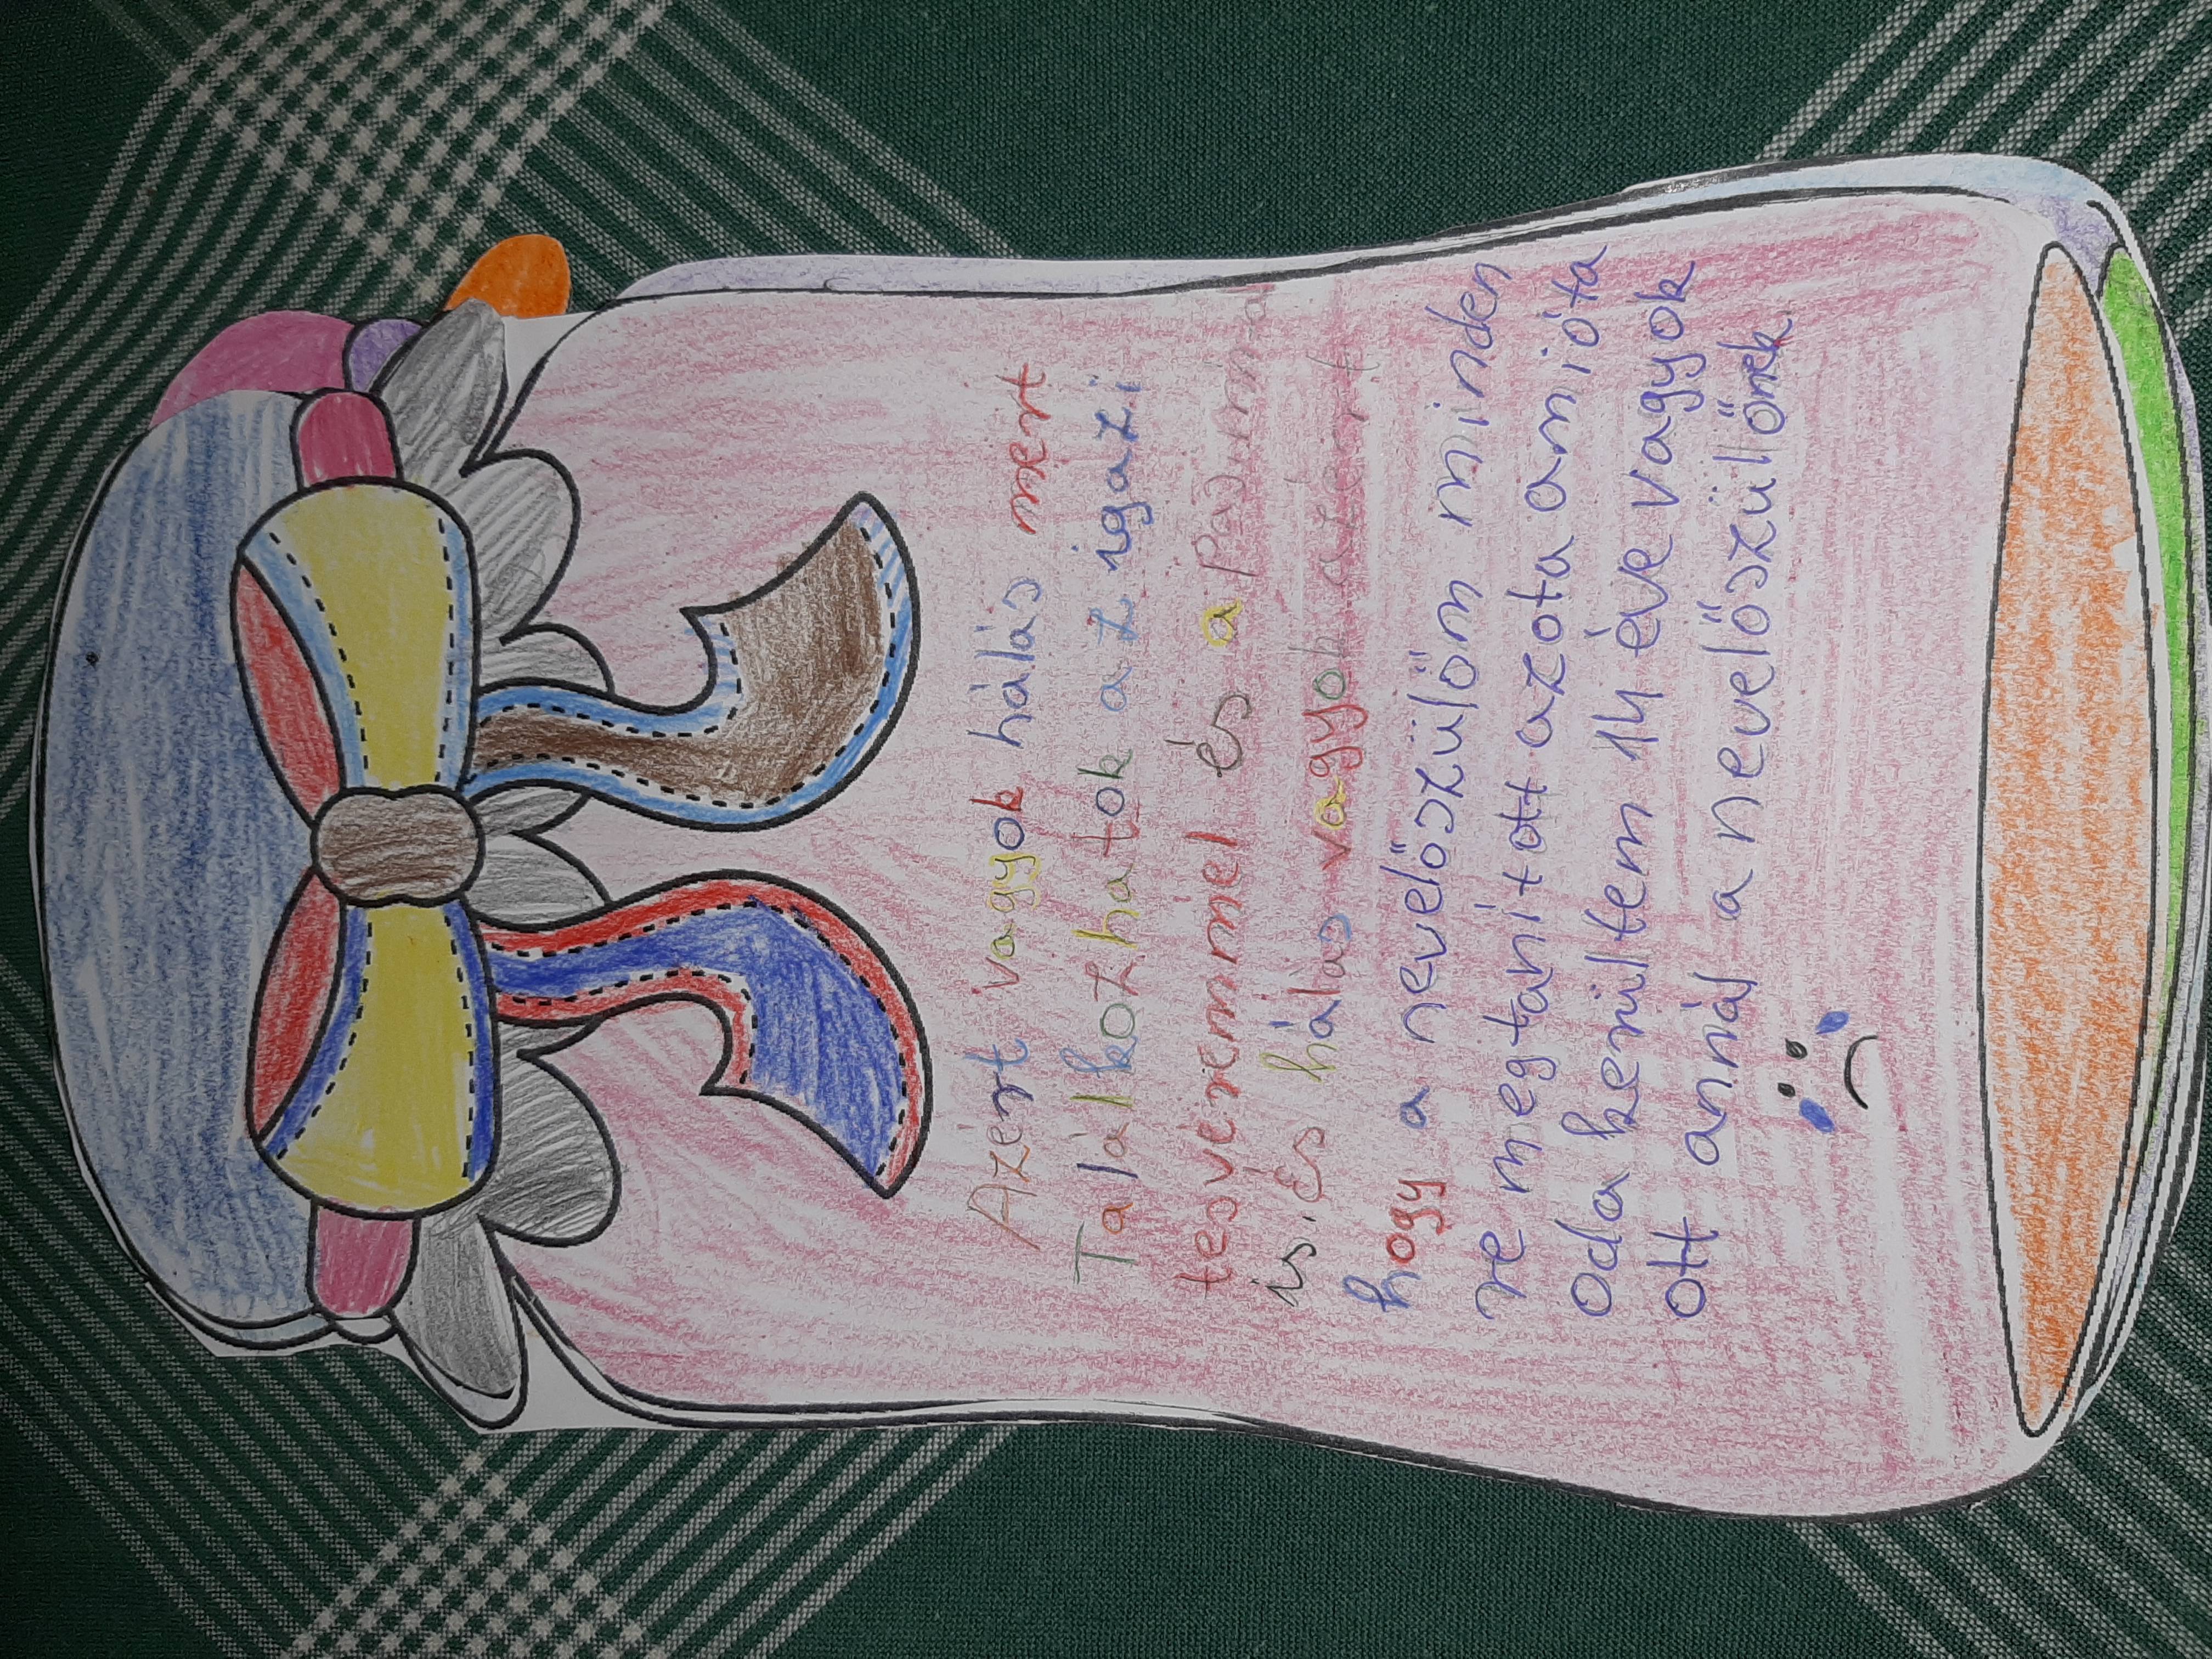 Azért vagyok hálás mert
Találkozhatok az igazi
tesvéremmel és a Papám
is. és hálás vagyok azért
hogy a nevelőszülőm minden
re megtanitott azota amióta
oda kerültem 14 éve vagyok
ott annál a nevelőszüllőnek